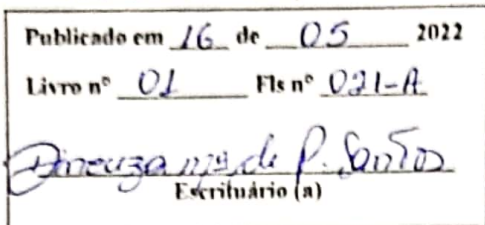 Publicado em 16 de 05 2022
Livro nº 01 Fls nº 021-A
Dineuza Mª de P. Santos
Escrituário (a)